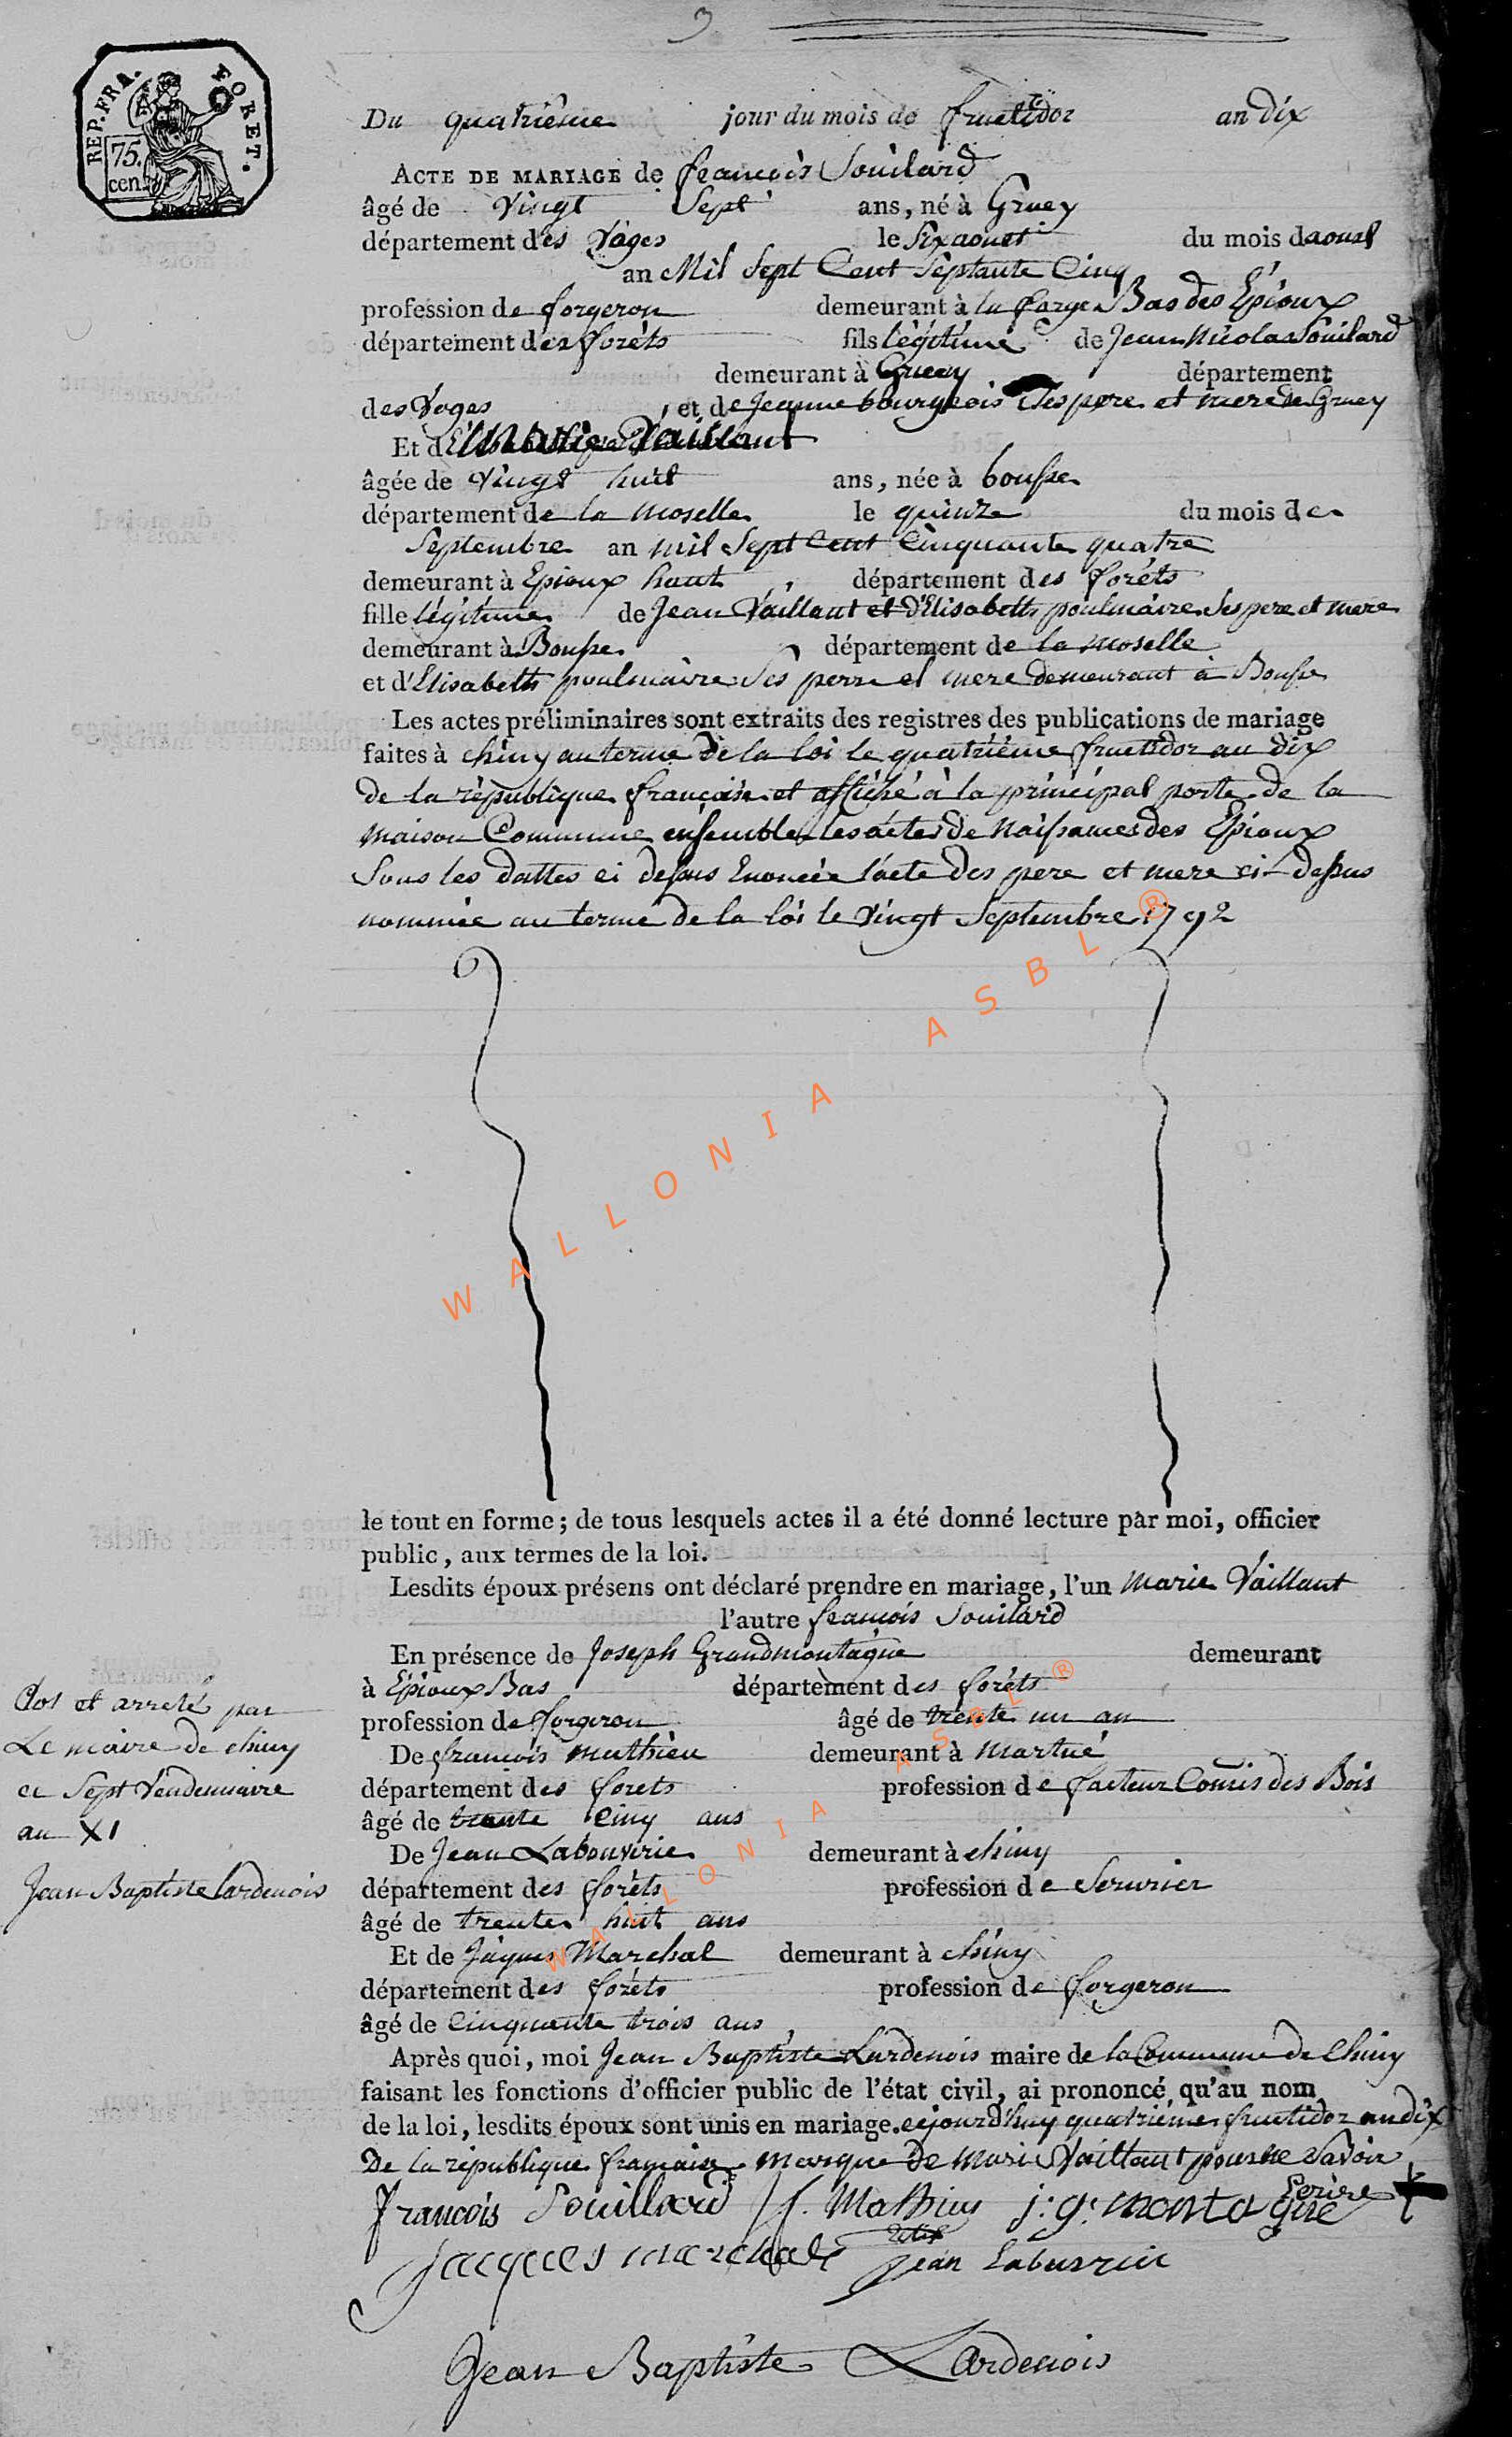 3
REP. FRA. FORET.
75.
cen.
Du quatriême jour du mois de fructidor an dix
ACTE DE MARIAGE de francois Souilard
âgé de vingt Sept ans, né à Gruey
département des Vôges le Six aoust du mois daoust
an Mil Sept Cent Septante Cinq
profession de forgeron demeurant à la forge Bas des Epioux
département des forêts fils légitime de Jean Nicolas Souilard
demeurant à Gruey département
des Voges, et de Jeanne bourgeois Ses pere et mere de Gruey
Et d Marie Vaillant
âgée de vingt huit ans, née à bousse
département de la moselle le quinze du mois de
Septembre an mil Sept Cent Cinquante quatre
demeurant à Epioux haut, département des forêts
fille légitime de Jean Vaillant et d'Elisabeth poulmaire Ses pere et mere
demeurant à Bousse département de la moselle
et d'Elisabeth poulmaire Ses perre et mere demeurant à Bousse
Les actes préliminaires sont extraits des registres des publications de mariage
faites à chiny au terme de la loi le quatriéme fructidor an dix
de la république française et affiché à la principal porte de la
maison Commune ensemble les actes de naissances des Epioux
Sous les dattes ci dessus Enoncée l'acte des pere et mere ci-dessus
nommée au terme de la loi le vingt Septembre 1792
le tout en forme; de tous lesquels actes il a été donné lecture par moi, officier
public, aux termes de la loi.
Lesdits époux présens ont déclaré prendre en mariage, l'un marie Vaillant
l'autre francois Souilard
En présence de Joseph Grandmontagne demeurant
à Epioux Bas département des forêts
profession de forgeron âgé de trente un an
De francois mathieu demeurant à martué
département des forets profession de facteur Comis des Bois
âgé de trente Cinq ans
De Jean Labouverie demeurant à chiny
département des forêts profession de Serurier
âgé de trente huit ans
Et de Jâques Marchal demeurant à chiny
département des forêts profession de forgeron
âgé de Cinquante trois ans
Après quoi, moi Jean Baptiste Lardenois maire de la Commune de Chiny
faisant les fonctions d'officier public de l'état civil, ai prononcé qu'au nom
de la loi, lesdits époux sont unis en mariage. cejourdhuy quatriéme fructidor an dix
De la république française marque de marie Vaillant pour ne Savoir
Ecrire +
francois Souillard f. Mathieu j: g: montagne
jacques marchal Jean Labuvrie
Jean Baptiste Lardenois
Clos et arreté par
Le maire de chiny
ce Sept Vendemiaire
an XI
Jean Baptiste Lardenois
WALLONIA ASBL ®
WALLONIA ASBL ®